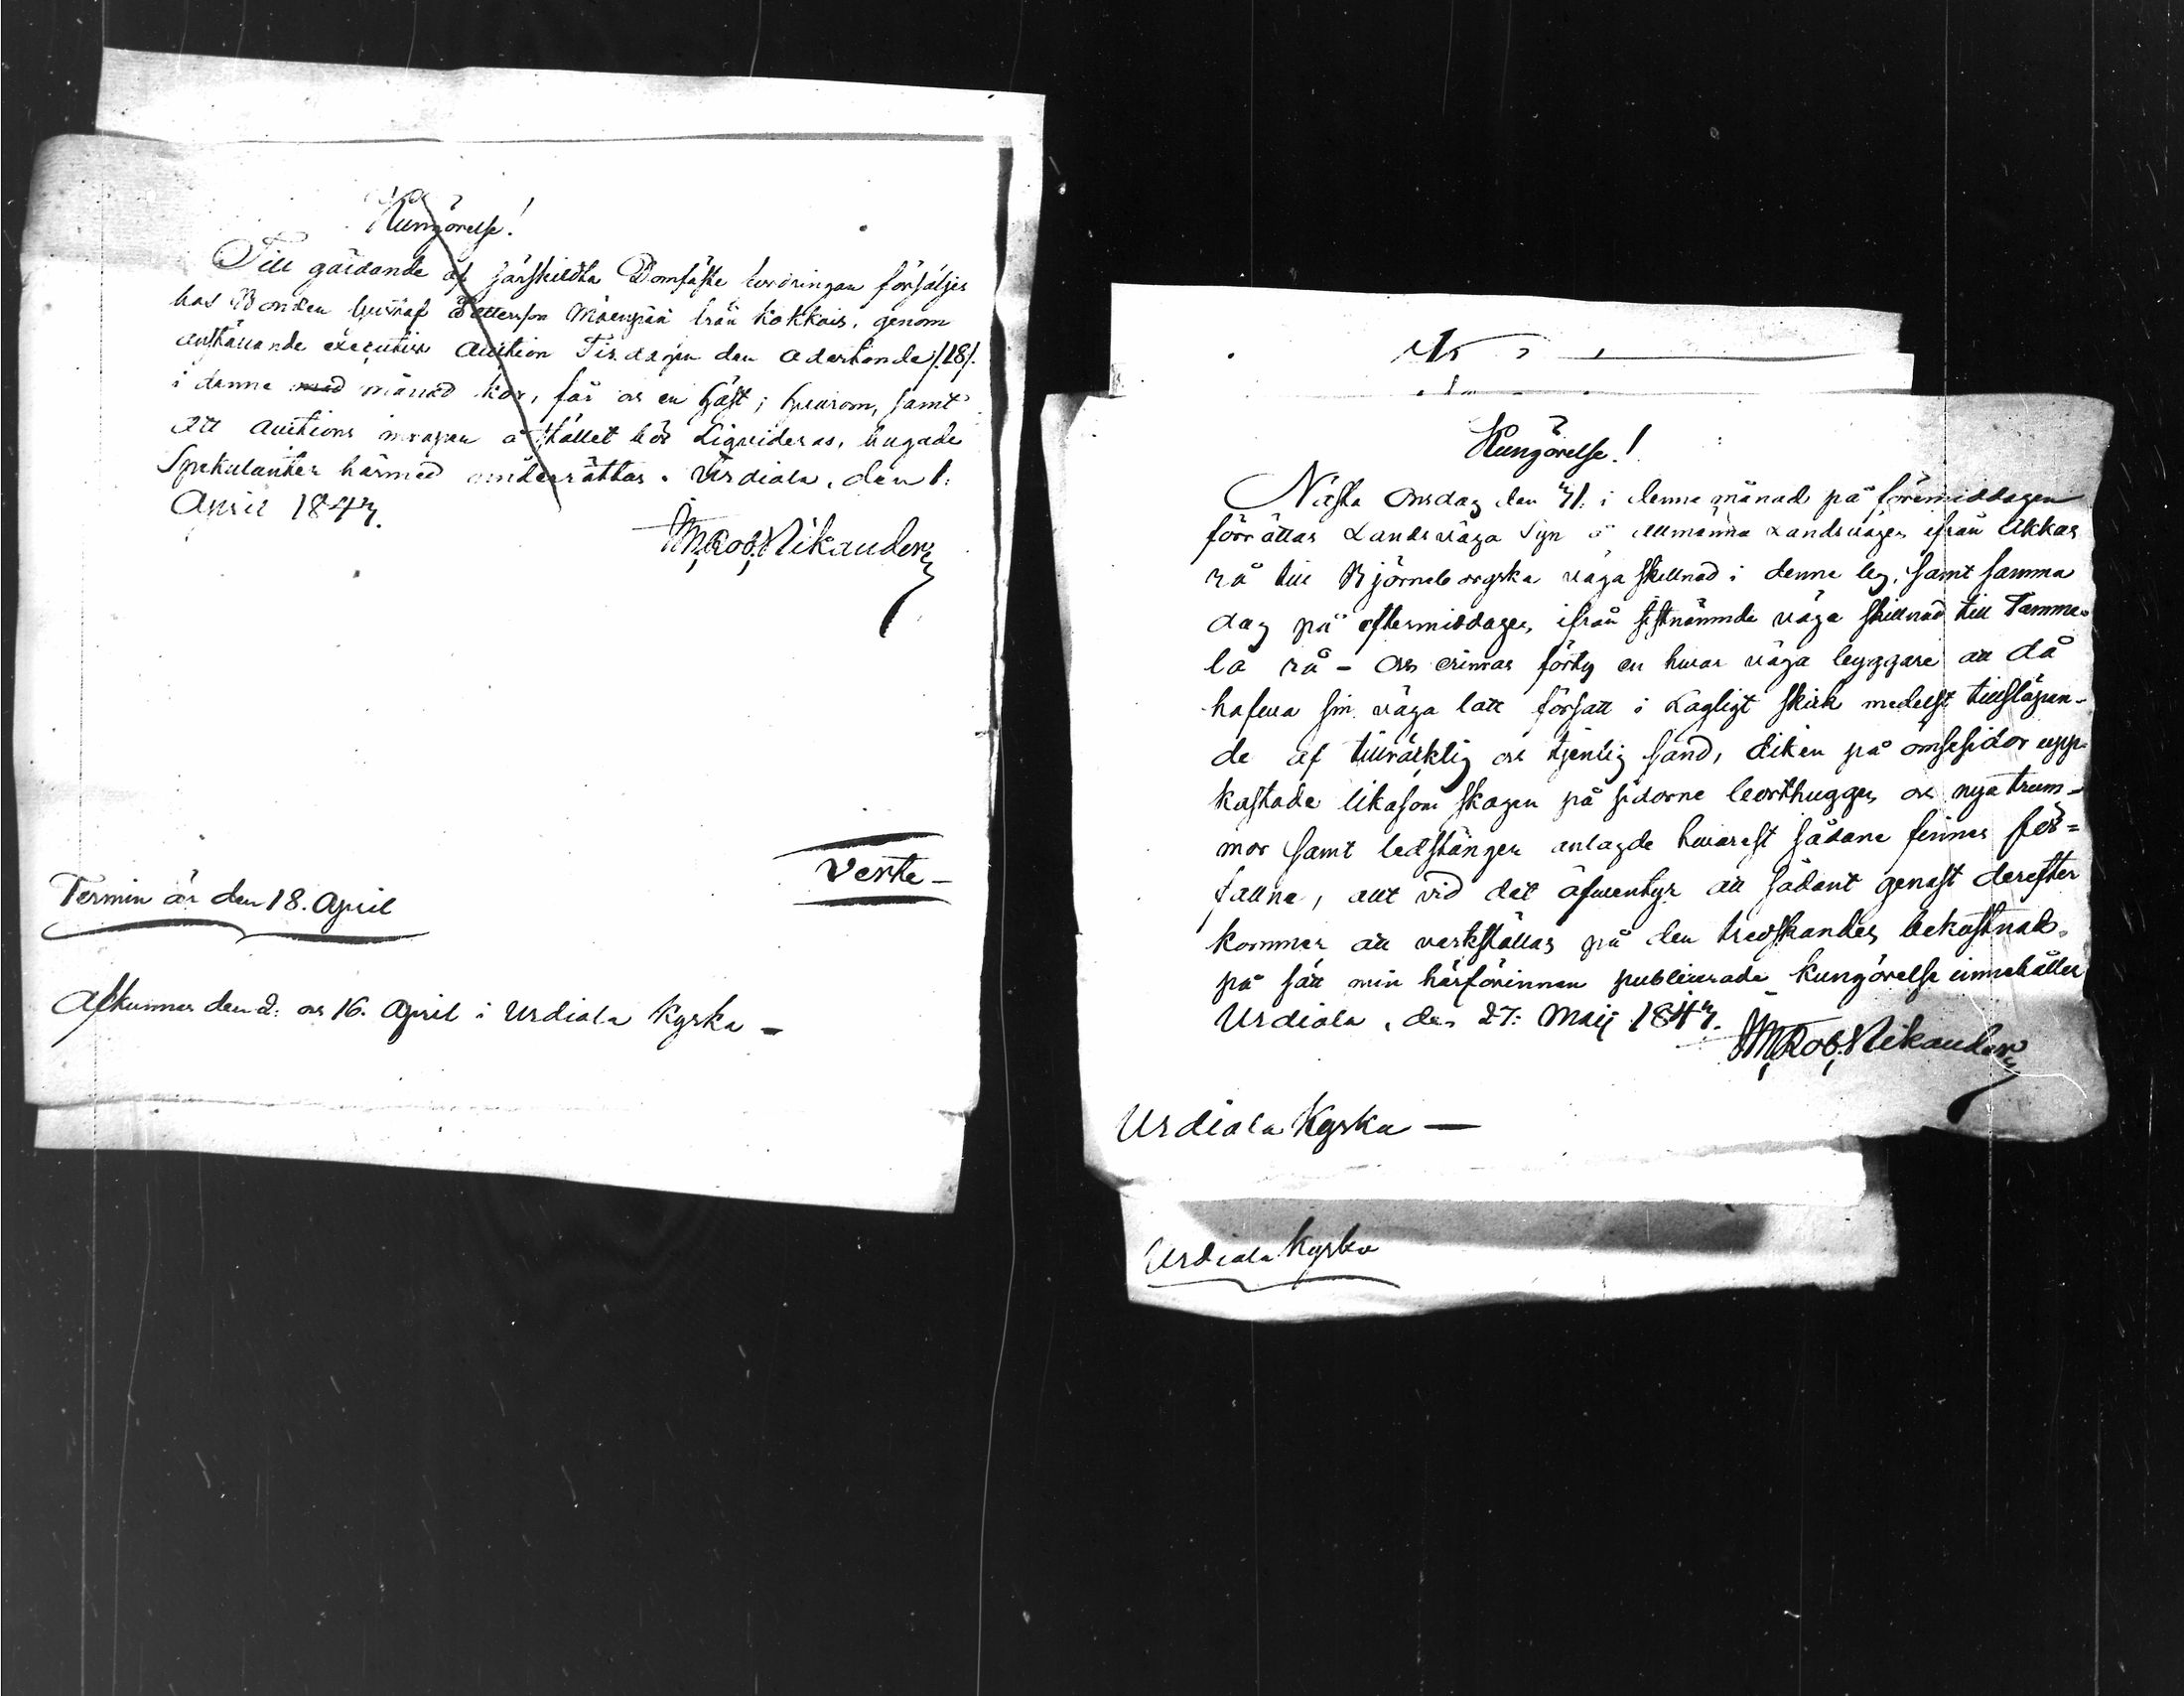 Kungörelse!
Till gäldande af särskildta Domfäste fordringar försäljes
hos Bonden Gustaf Pettersson Mäenpää från Kokkois, genom
anställande executiv Auction Tisdagen den adertonde /:18/:
i denne månad kor, får os en häst; hvarom, samt
att auctions inropen å stället bör Liqvideras, hugade
Spekulanter härmed underrättas. Urdiala, den 1:
April 1843.
Rob. Nikander
Verte-
Termin är den 18. April
Afkunnas den 2: os 16. April i Urdiala Kyrka -
Kungörelse!
Nästa Onsdag den 31: i denne månad på förmiddagen
förrättas Landsväga Syn å allmänna Landsvägen ifrån Akkas
rå till Björneborgska väga skillnad i denne by, samt samma
dag på eftermiddagen ifrån sistnämnde väga skillnad till Tamme-
la rå - os erinras förty en hvar väga byggare att då
hafva sin väga lott försatt i Lagligt skick medelst tillsläpan-
de af tillräcklig os tjenlig sand, diken på ömsesidor upp-
kastade likasom skogen på sidorne borthuggen os nya trum-
mor samt ledstänger anlagde hvarest sådane finnes för=
fallne, allt vid det äfventyr att sådant genast derefter
kommer att verkställas på den tredskandes bekostnad,
på sätt min härförinnan publicerade Kungörelse innehåller
Urdiala, den 27: Maij 1843.
Rob. Nikander
Urdiala Kyrka —
Urdiala Kyrka